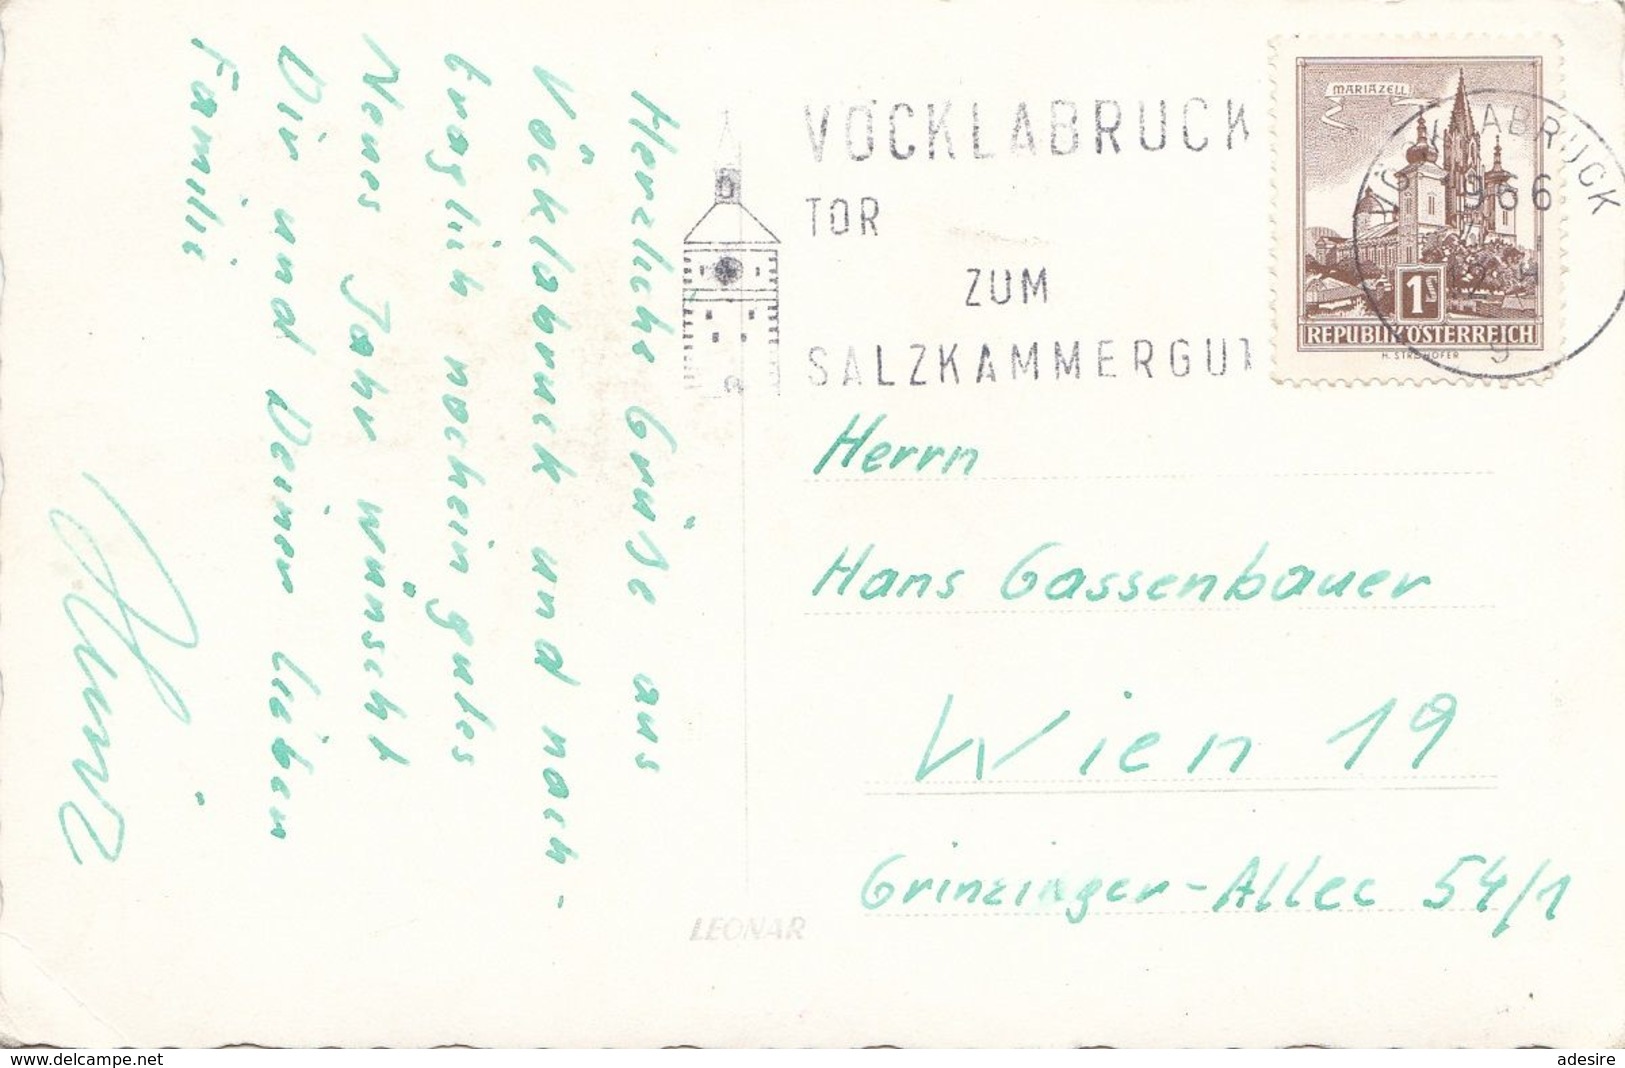 Herzliche Grüße aus
Vöcklabruck und nach-
träglich noch ein gutes
Neues Jahr wünscht
Dir und Deiner lieben
Familie
VÖCKLABRUCK
TOR
ZUM
SALZKAMMERGUT
MARIAZELL
1S
REPUBLIK ÖSTERREICH
H. STROHOFER
VÖCKLABRUCK
1966
9
Herrn
Hans Gassenbauer
Wien 19
Grinzinger-Allee 54/1
LEONAR
www.delcampe.net
adesire